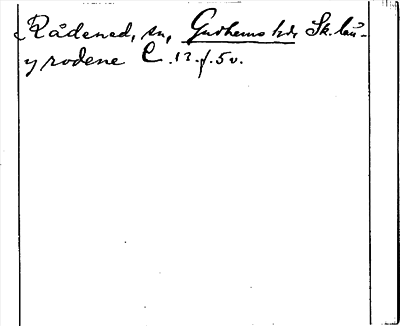 Rådened, sn, Gudhems hd, Sk. län
y rodene C.12.f.5v.